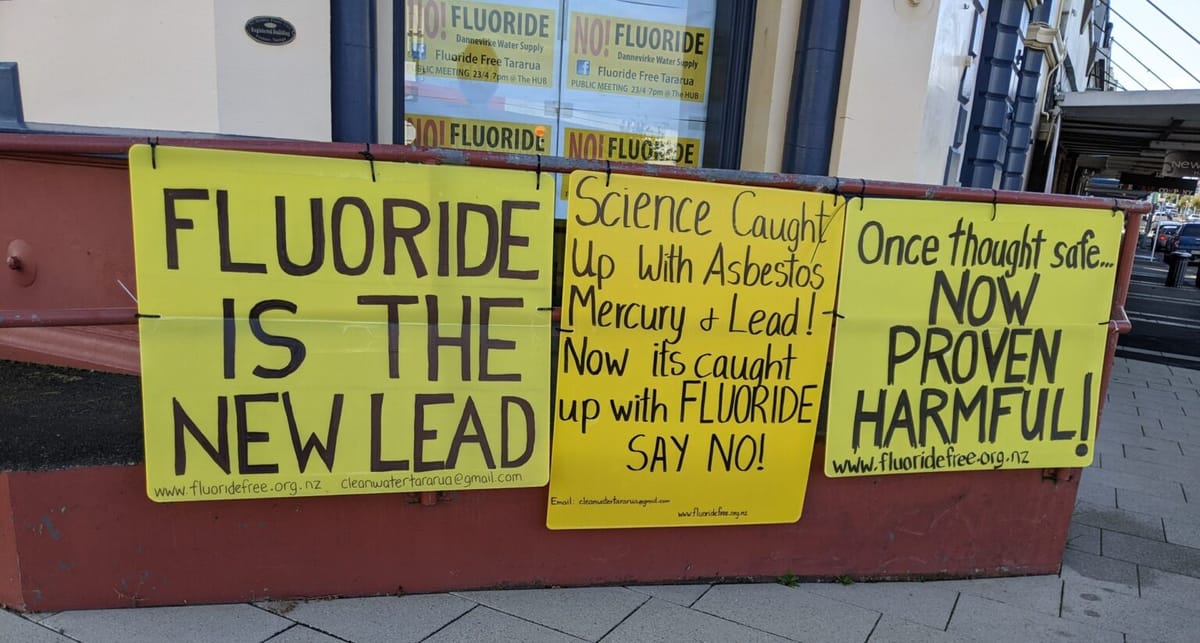 NO! FLUORIDE
Dannevirke Water Supply
Fluoride Free Tararua
PUBLIC MEETING 23/4 7pm @ The HUB
NO! FLUORIDE
Dannevirke Water Supply
Fluoride Free Tararua
PUBLIC MEETING 23/4 7pm @ The HUB
NO! FLUORIDE
NO! FLUORIDE
FLUORIDE
IS THE
NEW LEAD
www.fluoridefree.org.nz cleanwatertararua@gmail.com
Science Caught
Up With Asbestos
Mercury & Lead!
Now its caught
up with FLUORIDE
SAY NO!
Email: cleanwatertararua@gmail.com
www.fluoridefree.org.nz
Once thought safe...
NOW
PROVEN
HARMFUL!
www.fluoridefree.org.nz
New